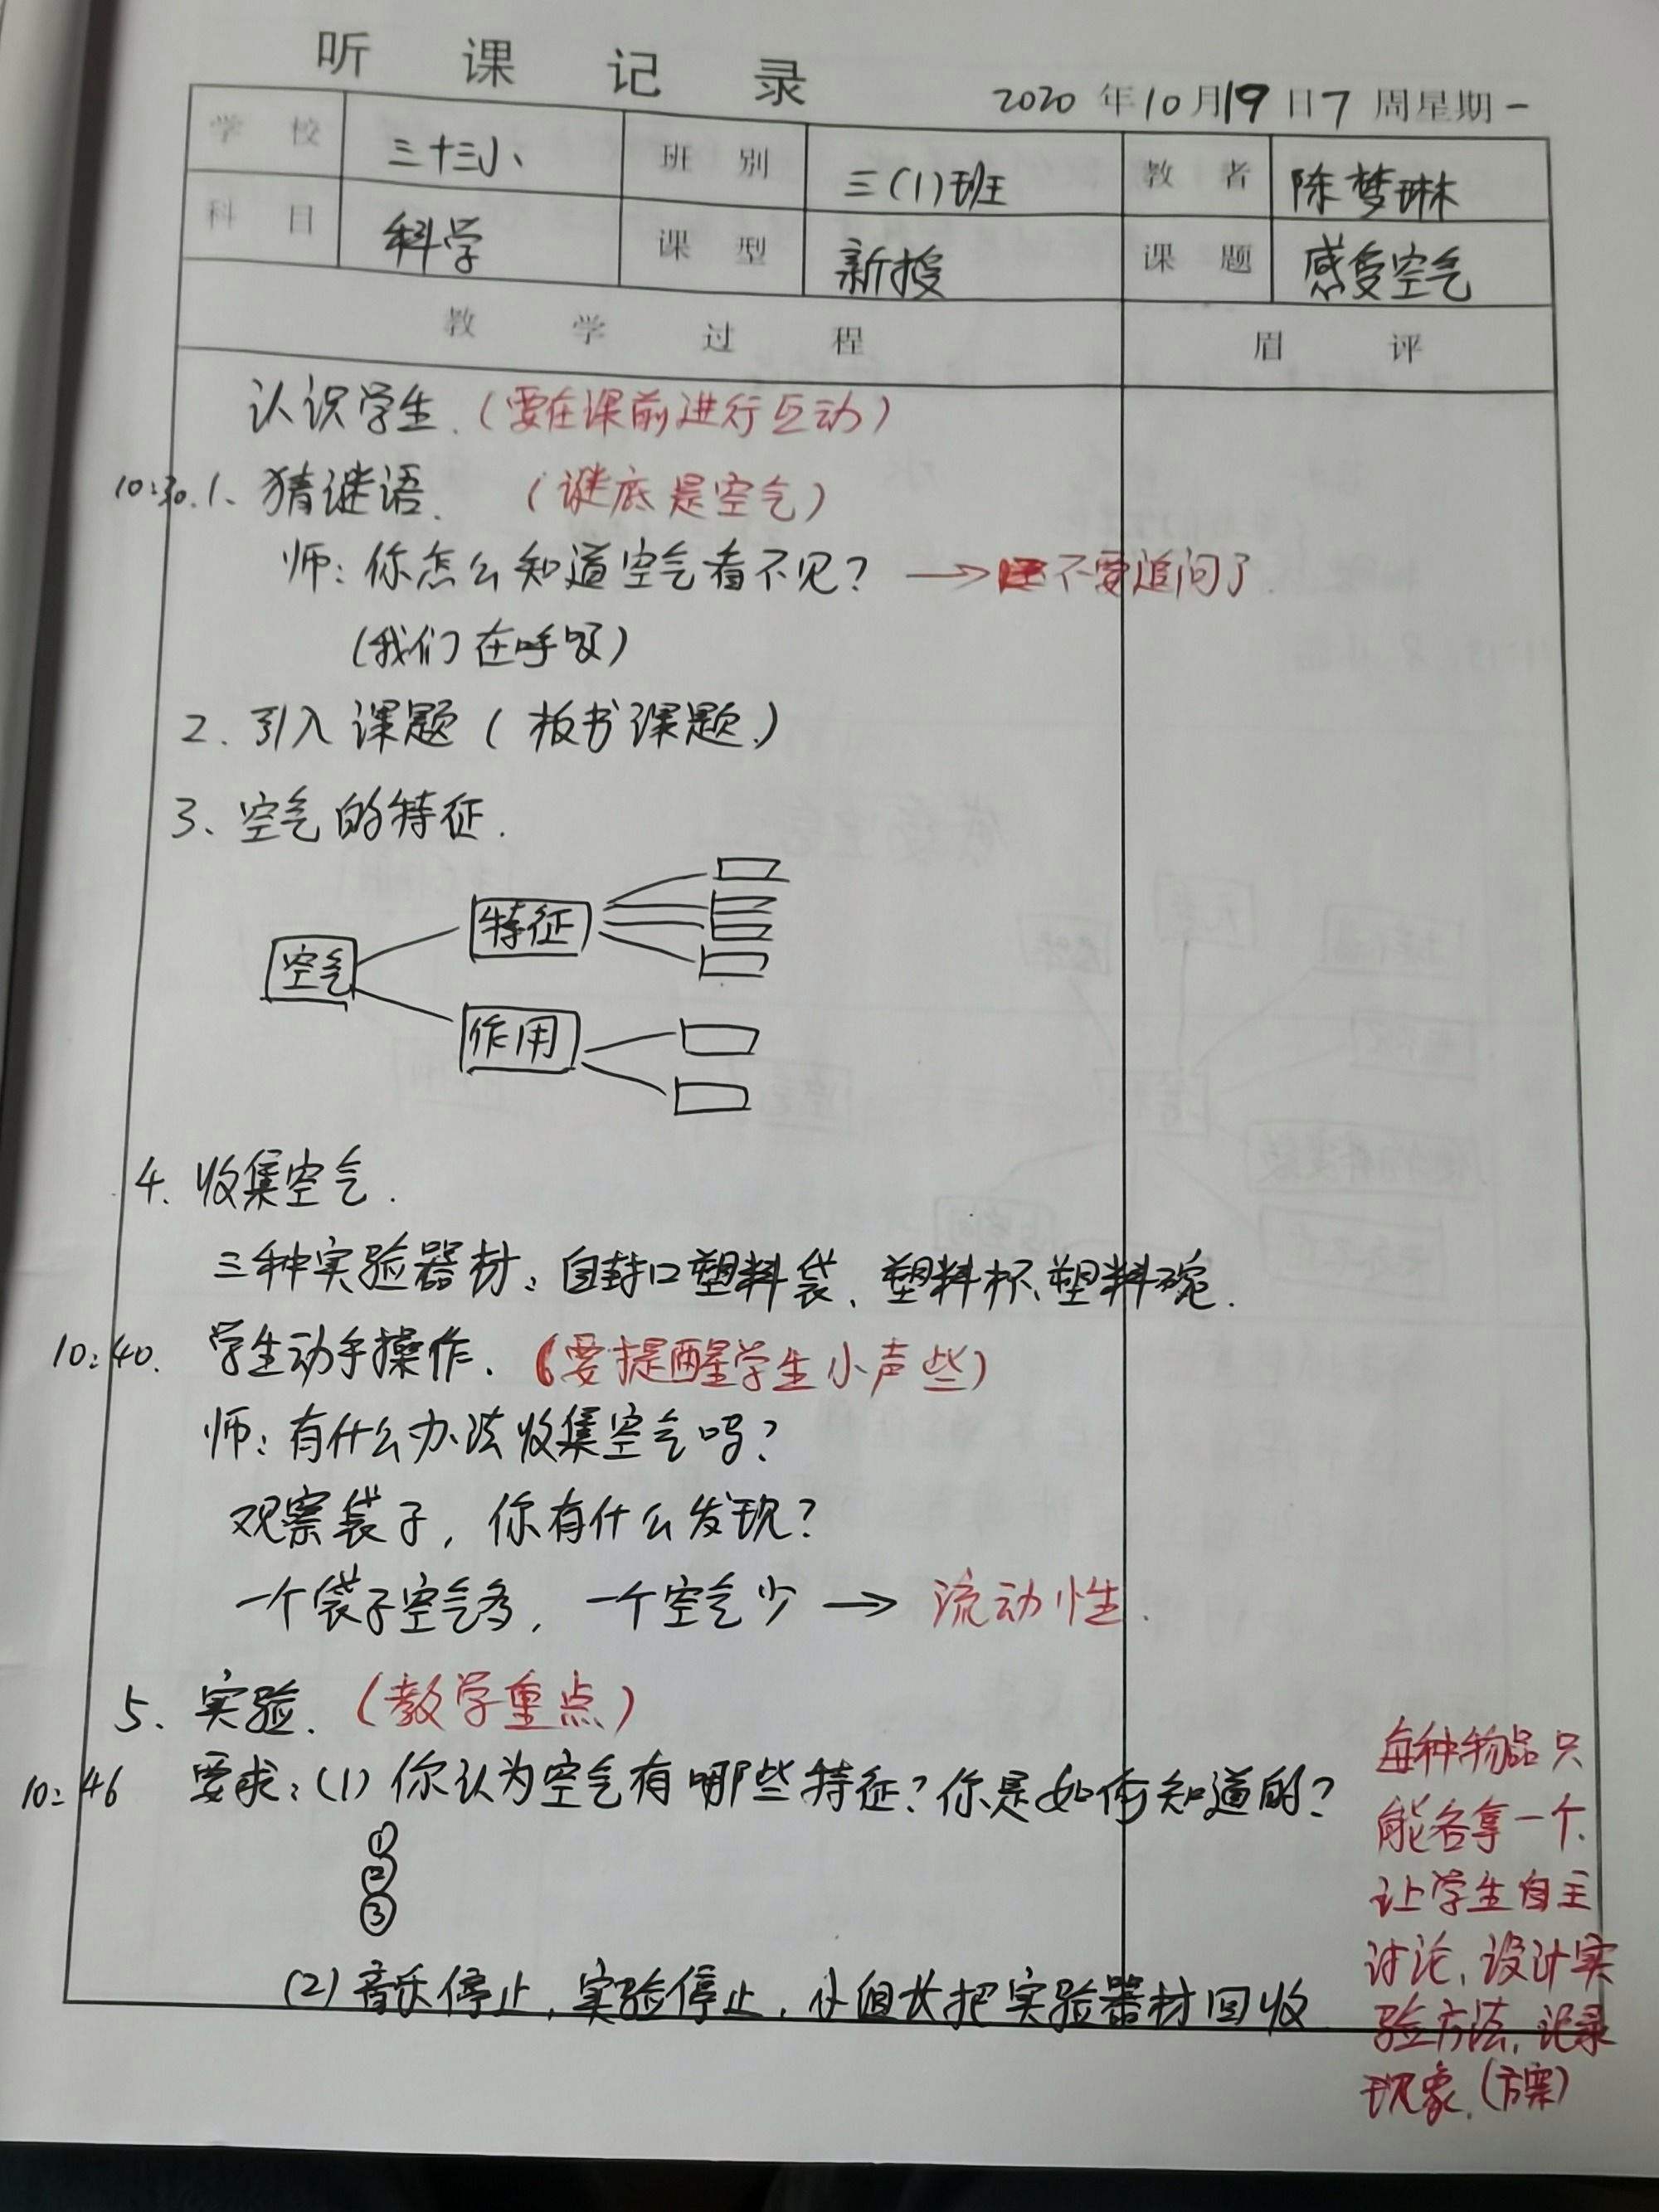 听课记录
2020年10月19日7周星期一
学校 三十三小 班别 三(1)班 教者 陈梦琳
科目 科学 课型 新授 课题 感受空气
教学过程 眉评
认识学生.(要在课前进行互动)
10:30.1、猜谜语.(谜底是空气)
师:你怎么知道空气看不见?→不要追问了.
(我们在呼吸)
2.引入课题(板书课题.)
3、空气的特征.
空气
特征
作用
4.收集空气.
三种实验器材:自封口塑料袋、塑料杯、塑料碗.
10:40.学生动手操作.(要提醒学生小声些)
师:有什么办法收集空气吗?
观察袋子,你有什么发现?
一个袋子空气多,一个空气少→流动性.
5、实验.(教学重点)
10:46 要求:(1)你认为空气有哪些特征?你是如何知道的?
①
②
③
(2)音乐停止,实验停止,小组长把实验器材回收
每种物品只
能各拿一个.
让学生自主
讨论,设计实
验方法,记录
现象.(方案)